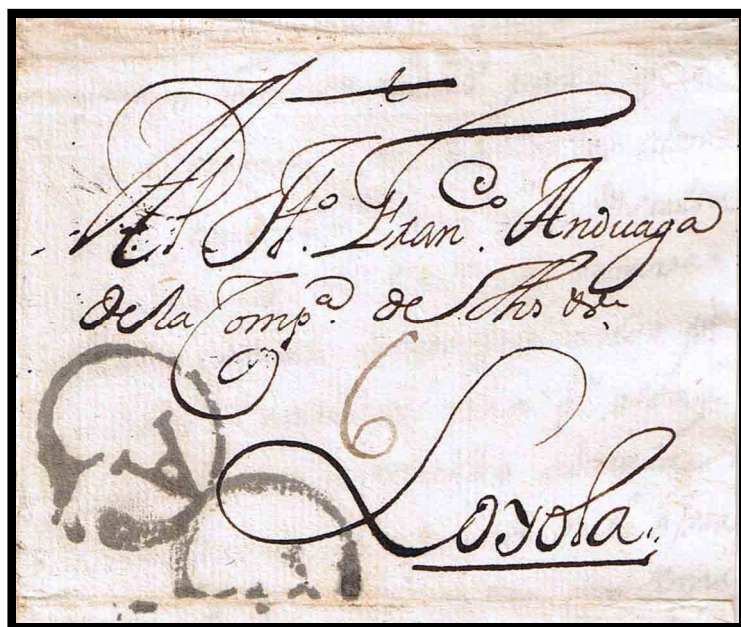 Al H.º Fran.co Anduaga
de la Comp.a de Jhs &.a
6
Loyola